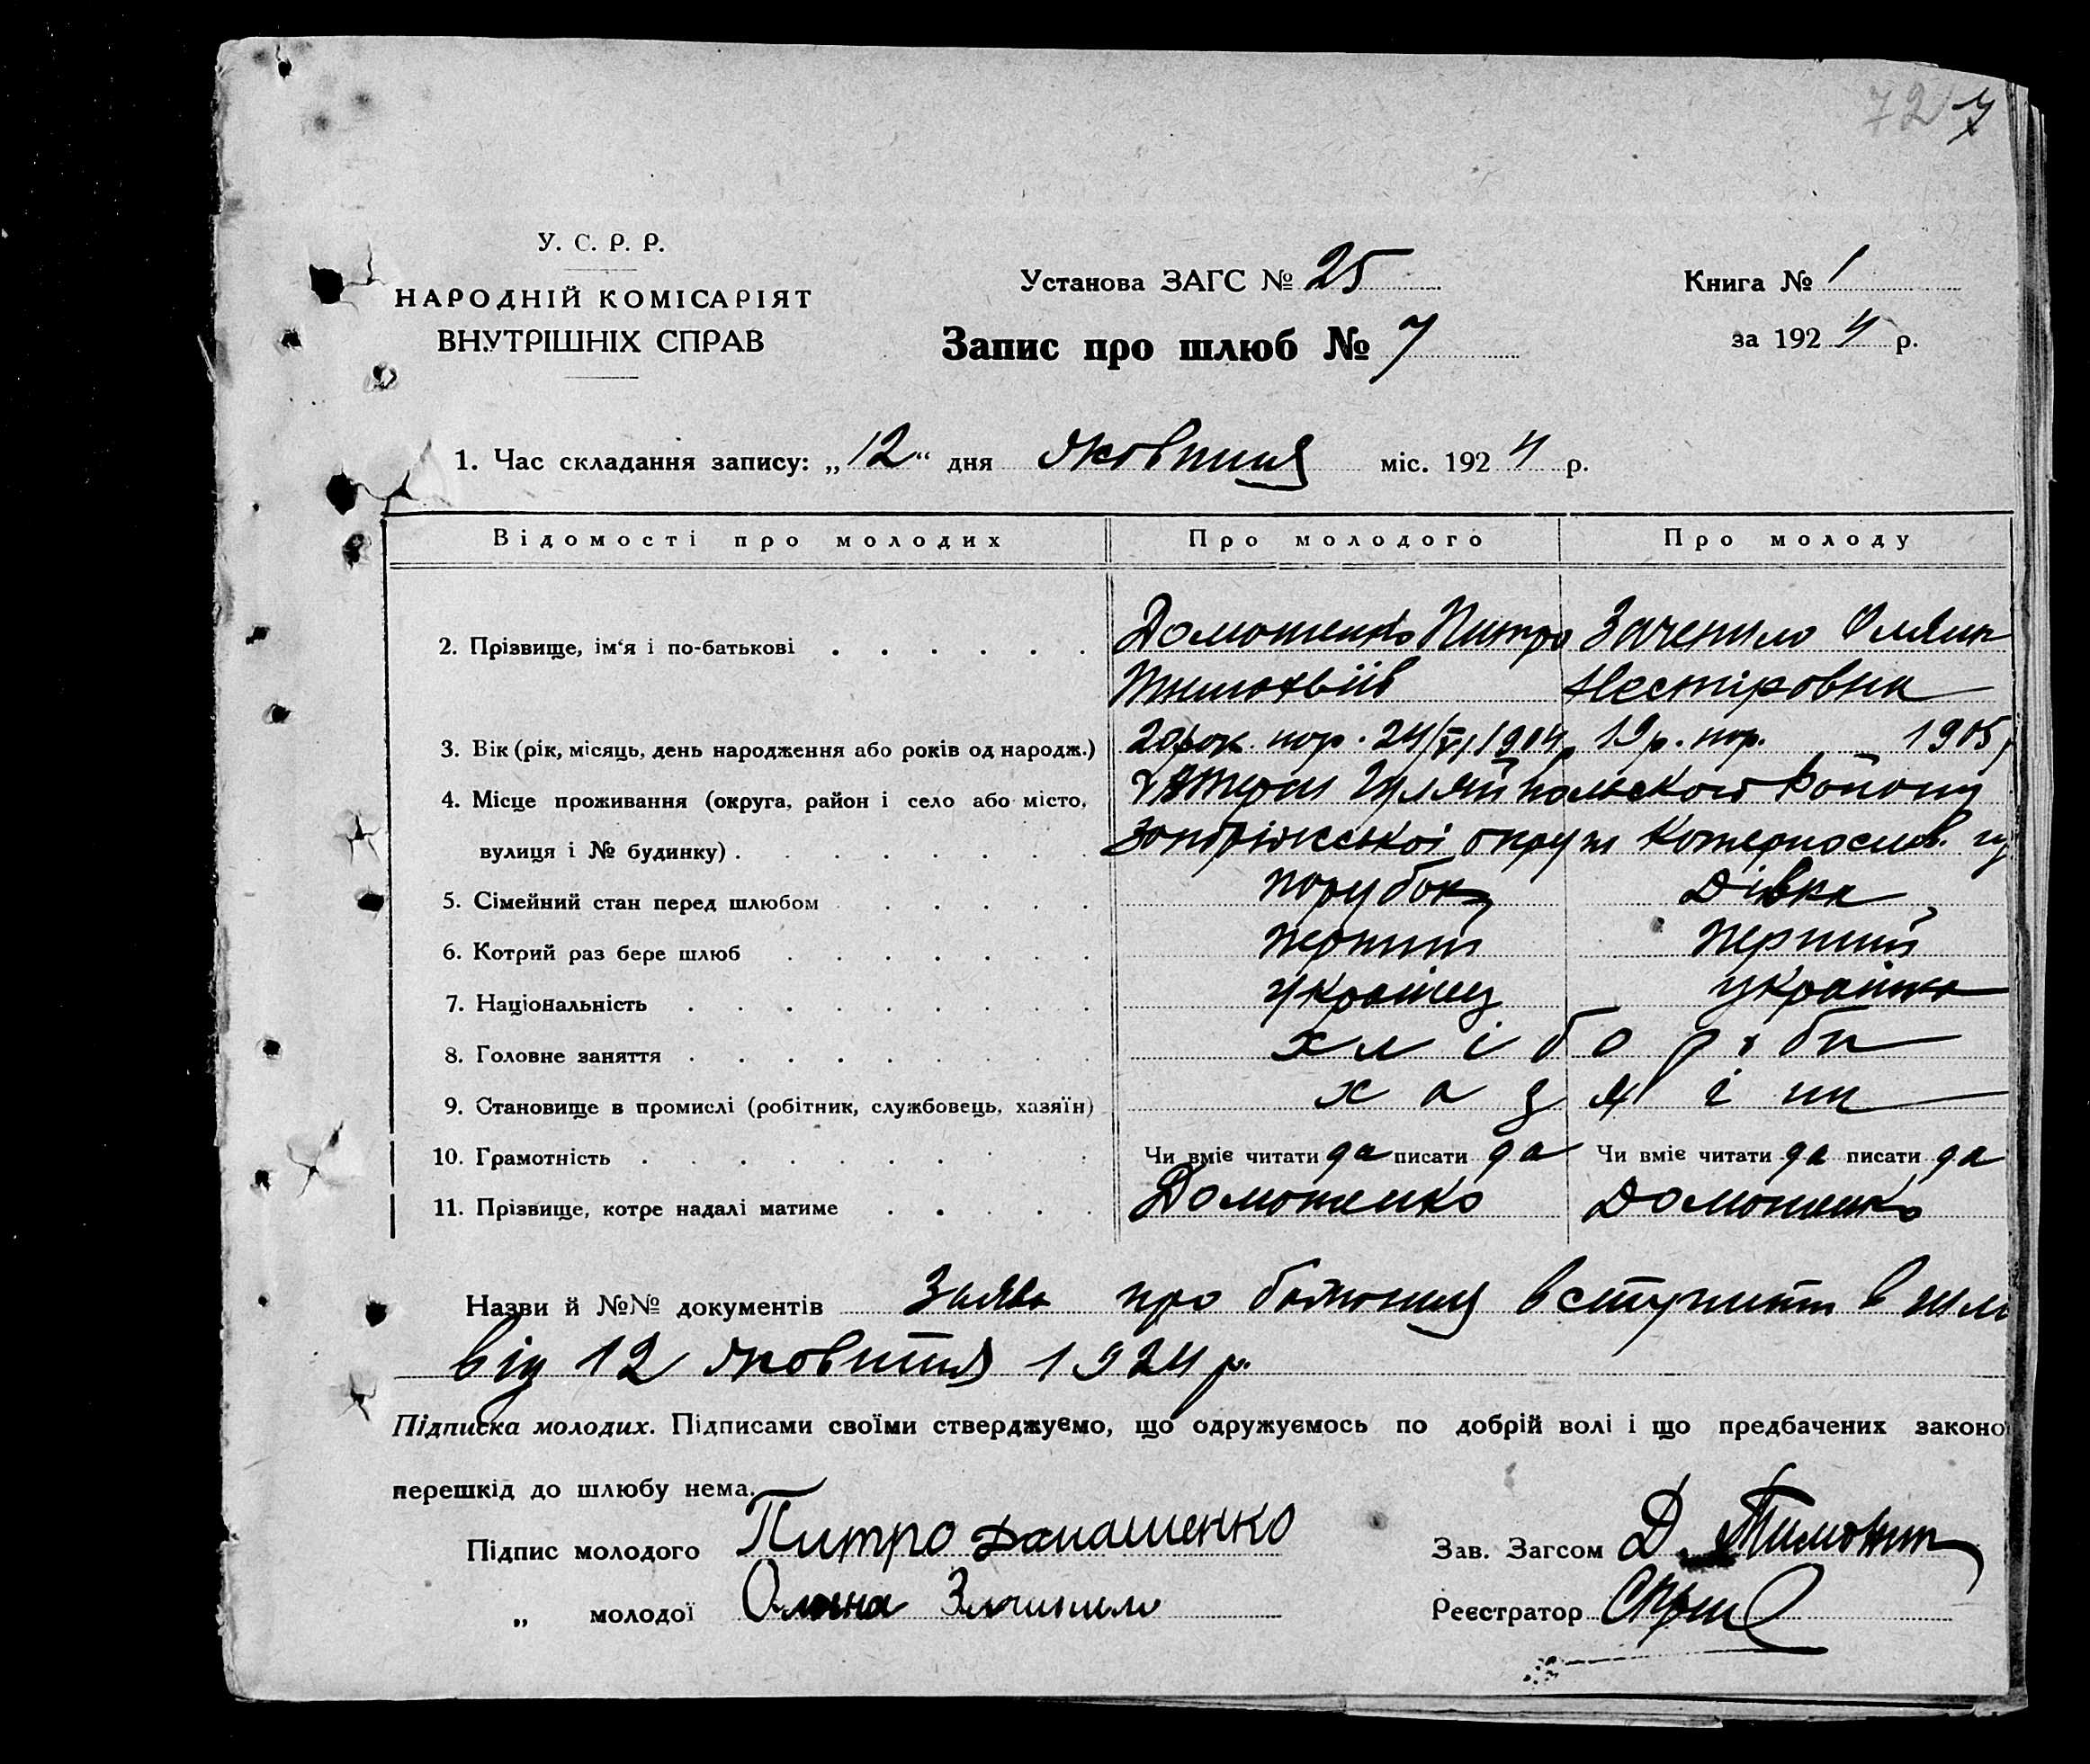 72 7
У. С. Р. Р.
НАРОДНІЙ КОМІСАРІЯТ
ВНУТРІШНІХ СПРАВ
Установа ЗАГС № 25
Запис про шлюб № 7
Книга № 1
за 1924 р.
1. Час складання запису: „12“ дня жовтня міс. 1924 р.
Відомості про молодих Про молодого Про молоду
2. Прізвище, ім‘я і по-батькові Домошенко Питро Зачепило Оляна
Тимохвіїв Нестіровна
3. Вік (рік, місяць, день народження або років од народж.) 20 рок. нар. 24/VI 1904 19 р. нар. 1905
4. Місце проживання (округа, район і село або місто, Гуляйпольского району
вулиця і № будинку) Запоріжськоі округи Катеринослав. гу
5. Сімейний стан перед шлюбом порубок дівка
6. Котрий раз бере шлюб перший перший
7. Національність українец українка
8. Головне заняття хлібороби
9. Становище в промислі (робітник, службовець, хазяїн) хазяіни
10. Грамотність Чи вміє читати да писати да Чи вміє читати да писати да
11. Прізвище, котре надалі матиме Домошенко Домошенко
Назви й №№ документів Заява про бажання вступити в шлю
від 12 жовтня 1924 р.
Підписка молодих. Підписами своїми стверджуємо, що одружуємось по добрій волі і що предбачених законо
перешкід до шлюбу нема.
Підпис молодого Питро Домашенко
Зав. Загсом Д.
„ молодої Оляна Зачипило
Реєстратор